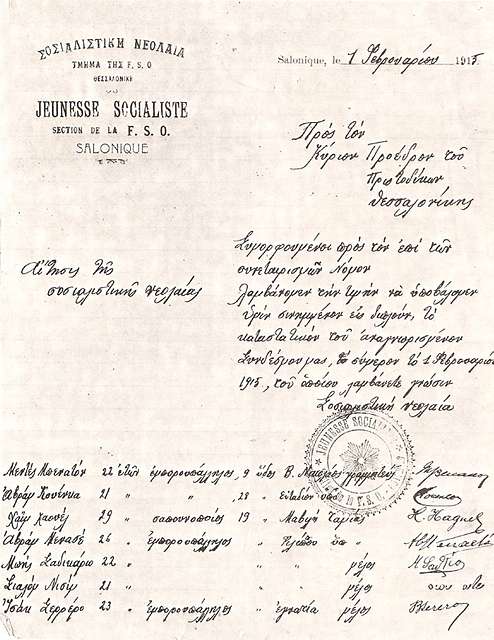 ΣΟΣΙΑΛΙΣΤΙΚΗ ΝΕΟΛΑΙΑ
ΤΜΗΜΑ ΤΗΣ F. S. O
ΘΕΣΣΑΛΟΝΙΚΗ
JEUNESSE SOCIALISTE
SECTION DE LA F. S. O.
SALONIQUE
Salonique, le 1 Φεβρουαρίου 1915
Πρὸς τὸν
Κύριον Πρόεδρον τοῦ
Πρωτοδίκων
Θεσσαλονίκης
Αἴτησις τῆς
σοσιαλιστικῆς νεολαίας
Συμορφουμένοι πρὸς τὸν ἐπὶ τῶν
συνεταιρισμῶν Νόμον
λαμβάνομεν τὴν τιμὴν νὰ ὑποβάλομεν
ὑμῖν συνημμένον εἰς διπλοῦν, τὸ
καταστατικὸν τοῦ ἀναγνωρισμένου
Συνδέσμου μας, σήμερον τὸ 1 Φεβρουαρίου
1915, τοῦ ὁποίου λαμβάνετε γνῶσιν
Σοσιαλιστικὴ νεολαία
JEUNESSE SOCIALISTE
Μεντὲς Μπενατὸν 22 ἐτῶν ἐμποροϋπάλληλος, 9 ὁδὸς Β. γραμματεὺς
Ἀβρὰμ 21 " " 28 "
Χαῒμ 29 " σαπουνοποιὸς 19 " ταμίας
Ἀβρὰμ Μενασὲ 26 " ἐμποροϋπάλληλος " "
Μωῆς 22 " " " μέλος
Σιαλὸμ Νισὶμ 21 " " " μέλος
Ἰσὰκ Σερρέρο 23 " ἐμποροϋπάλληλος " ἐγνατία μέλος